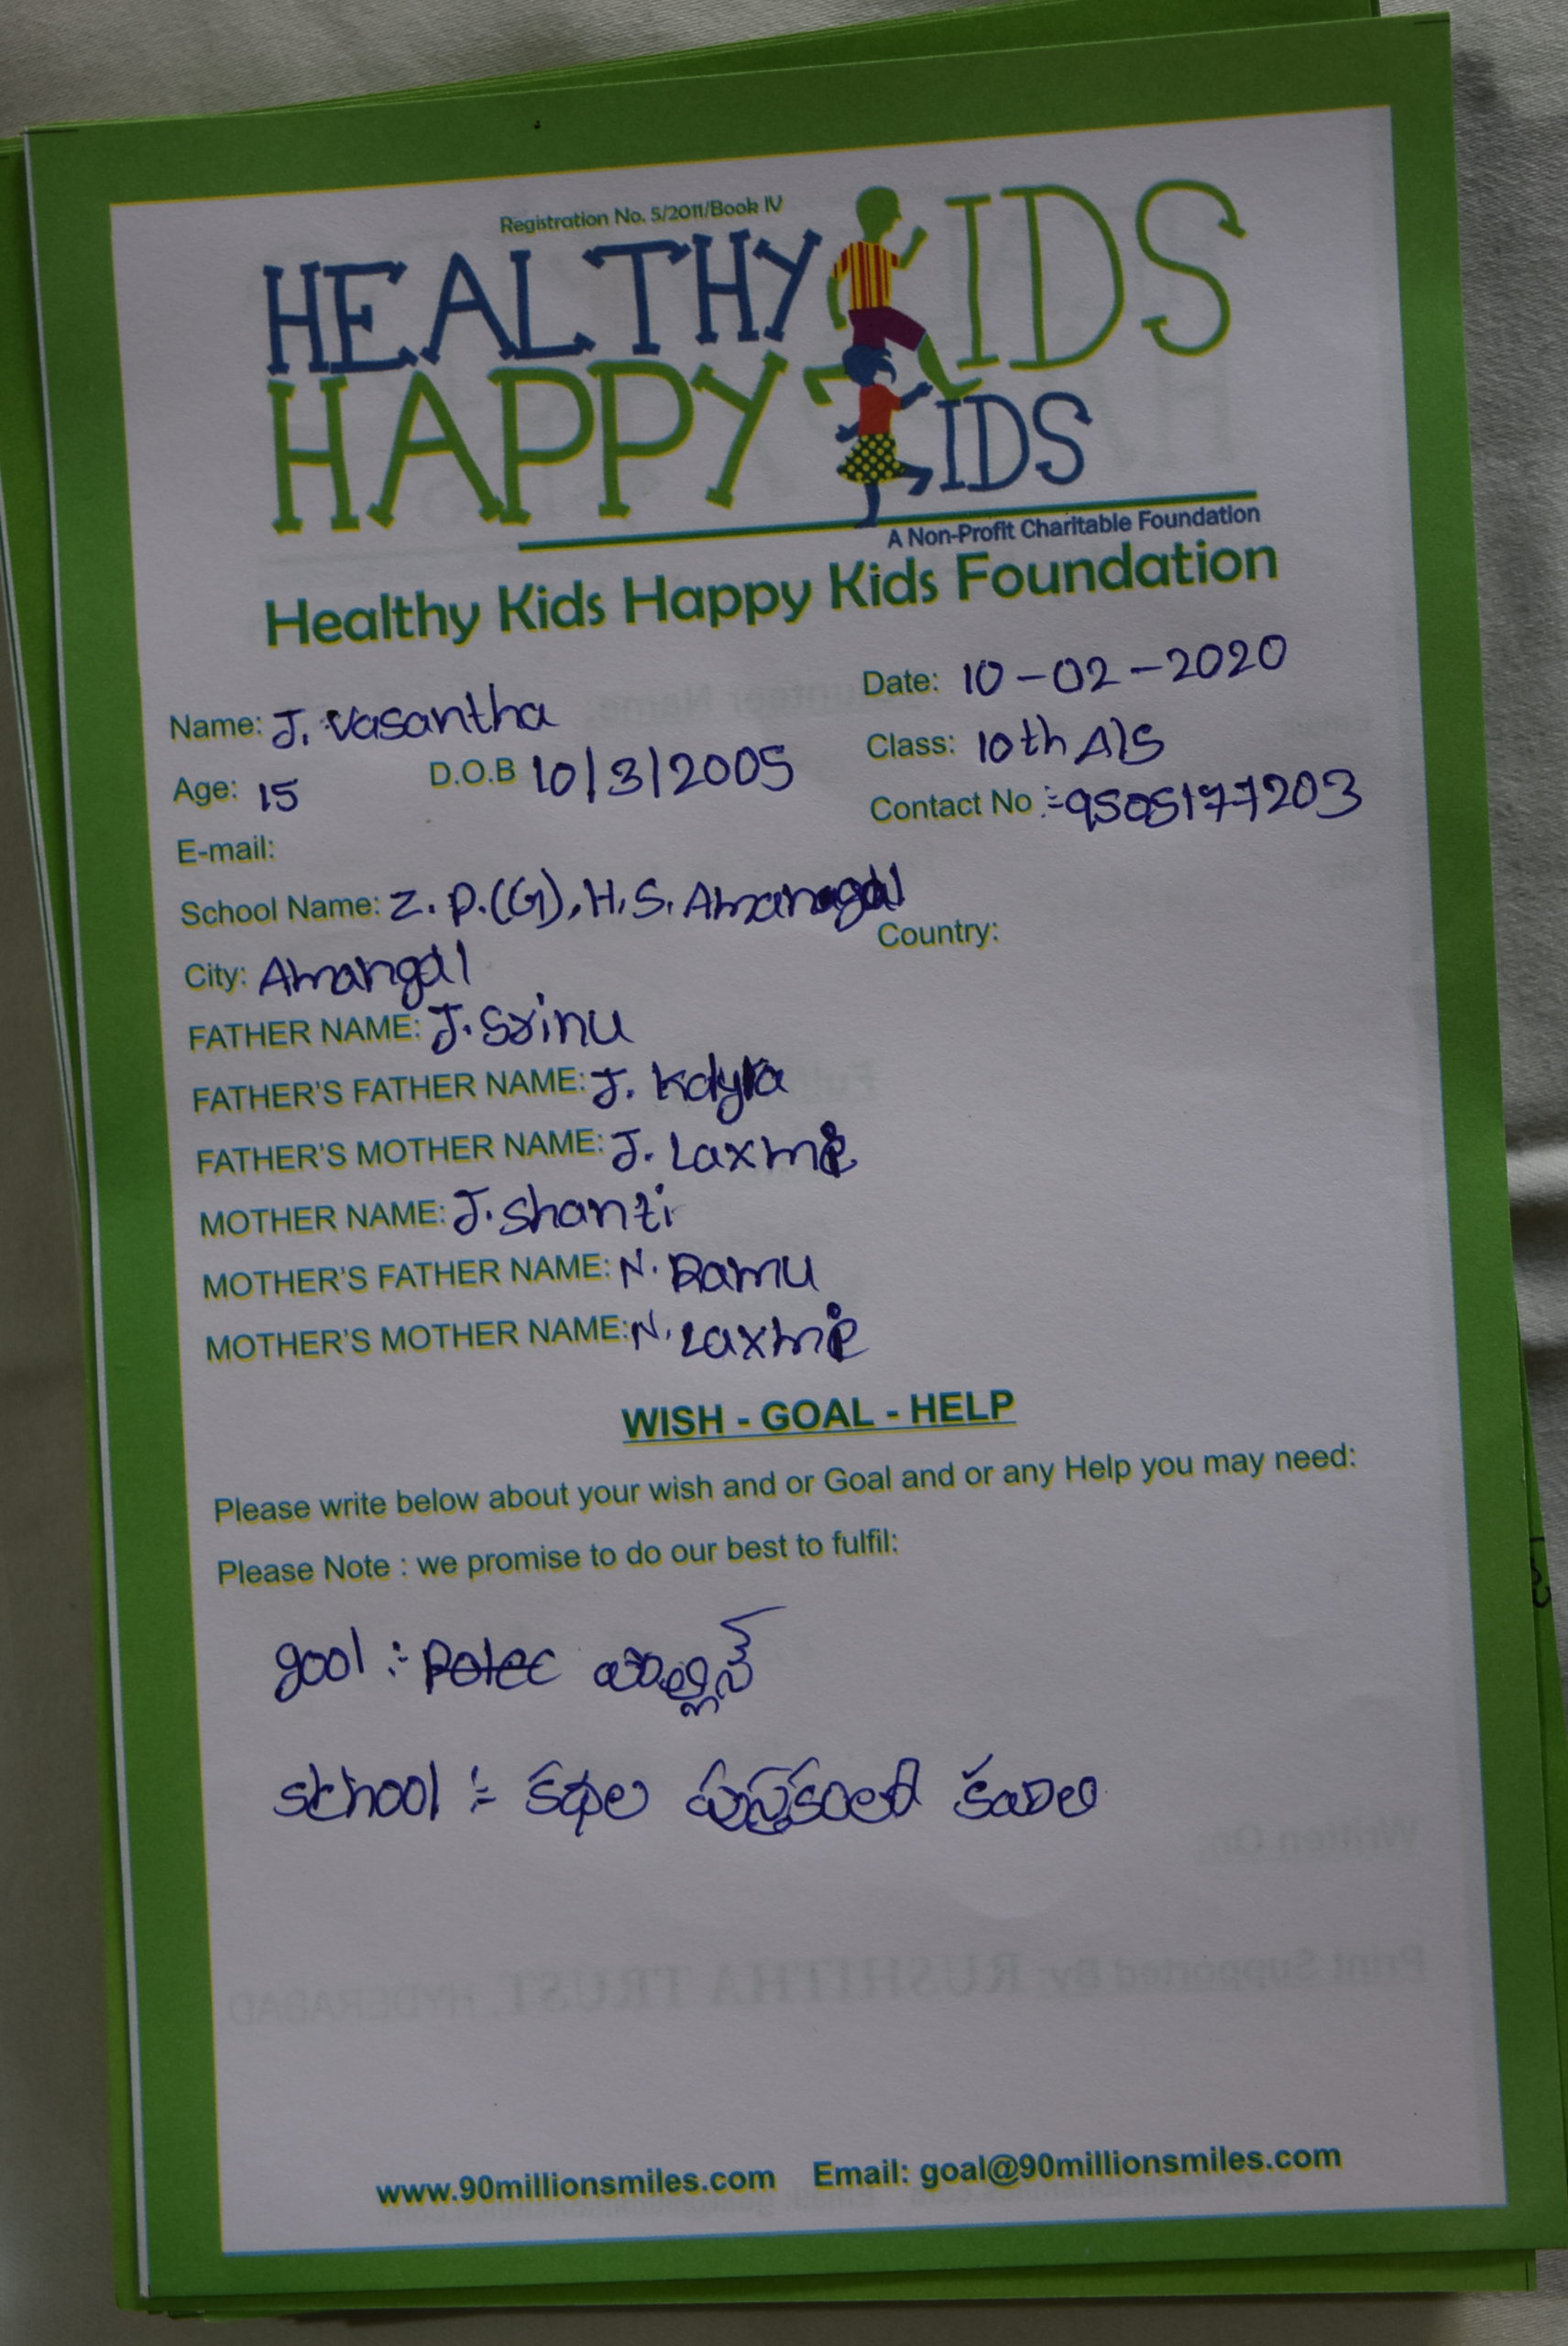 Registration No. 5/2011/Book IV
HEALTHY KIDS
HAPPY KIDS
A Non-Profit Charitable Foundation
Healthy Kids Happy Kids Foundation
Name: J. Vasantha Date: 10-02-2020
Age: 15 D.O.B 10/3/2005 Class: 10th A/S
E-mail: Contact No :- 9505177203
School Name: Z. P.(G), H. S. Amanagal
City: Amangal Country:
FATHER NAME: J. Srinu
FATHER'S FATHER NAME: J.
FATHER'S MOTHER NAME: J. Laxmi
MOTHER NAME: J. shanti
MOTHER'S FATHER NAME: N. Ramu
MOTHER'S MOTHER NAME: N. Laxmi
WISH - GOAL - HELP
Please write below about your wish and or Goal and or any Help you may need:
Please Note : we promise to do our best to fulfil:
gool :-
school :- కథల పుస్తకంలో కావాల
www.90millionsmiles.com Email: goal@90millionsmiles.com